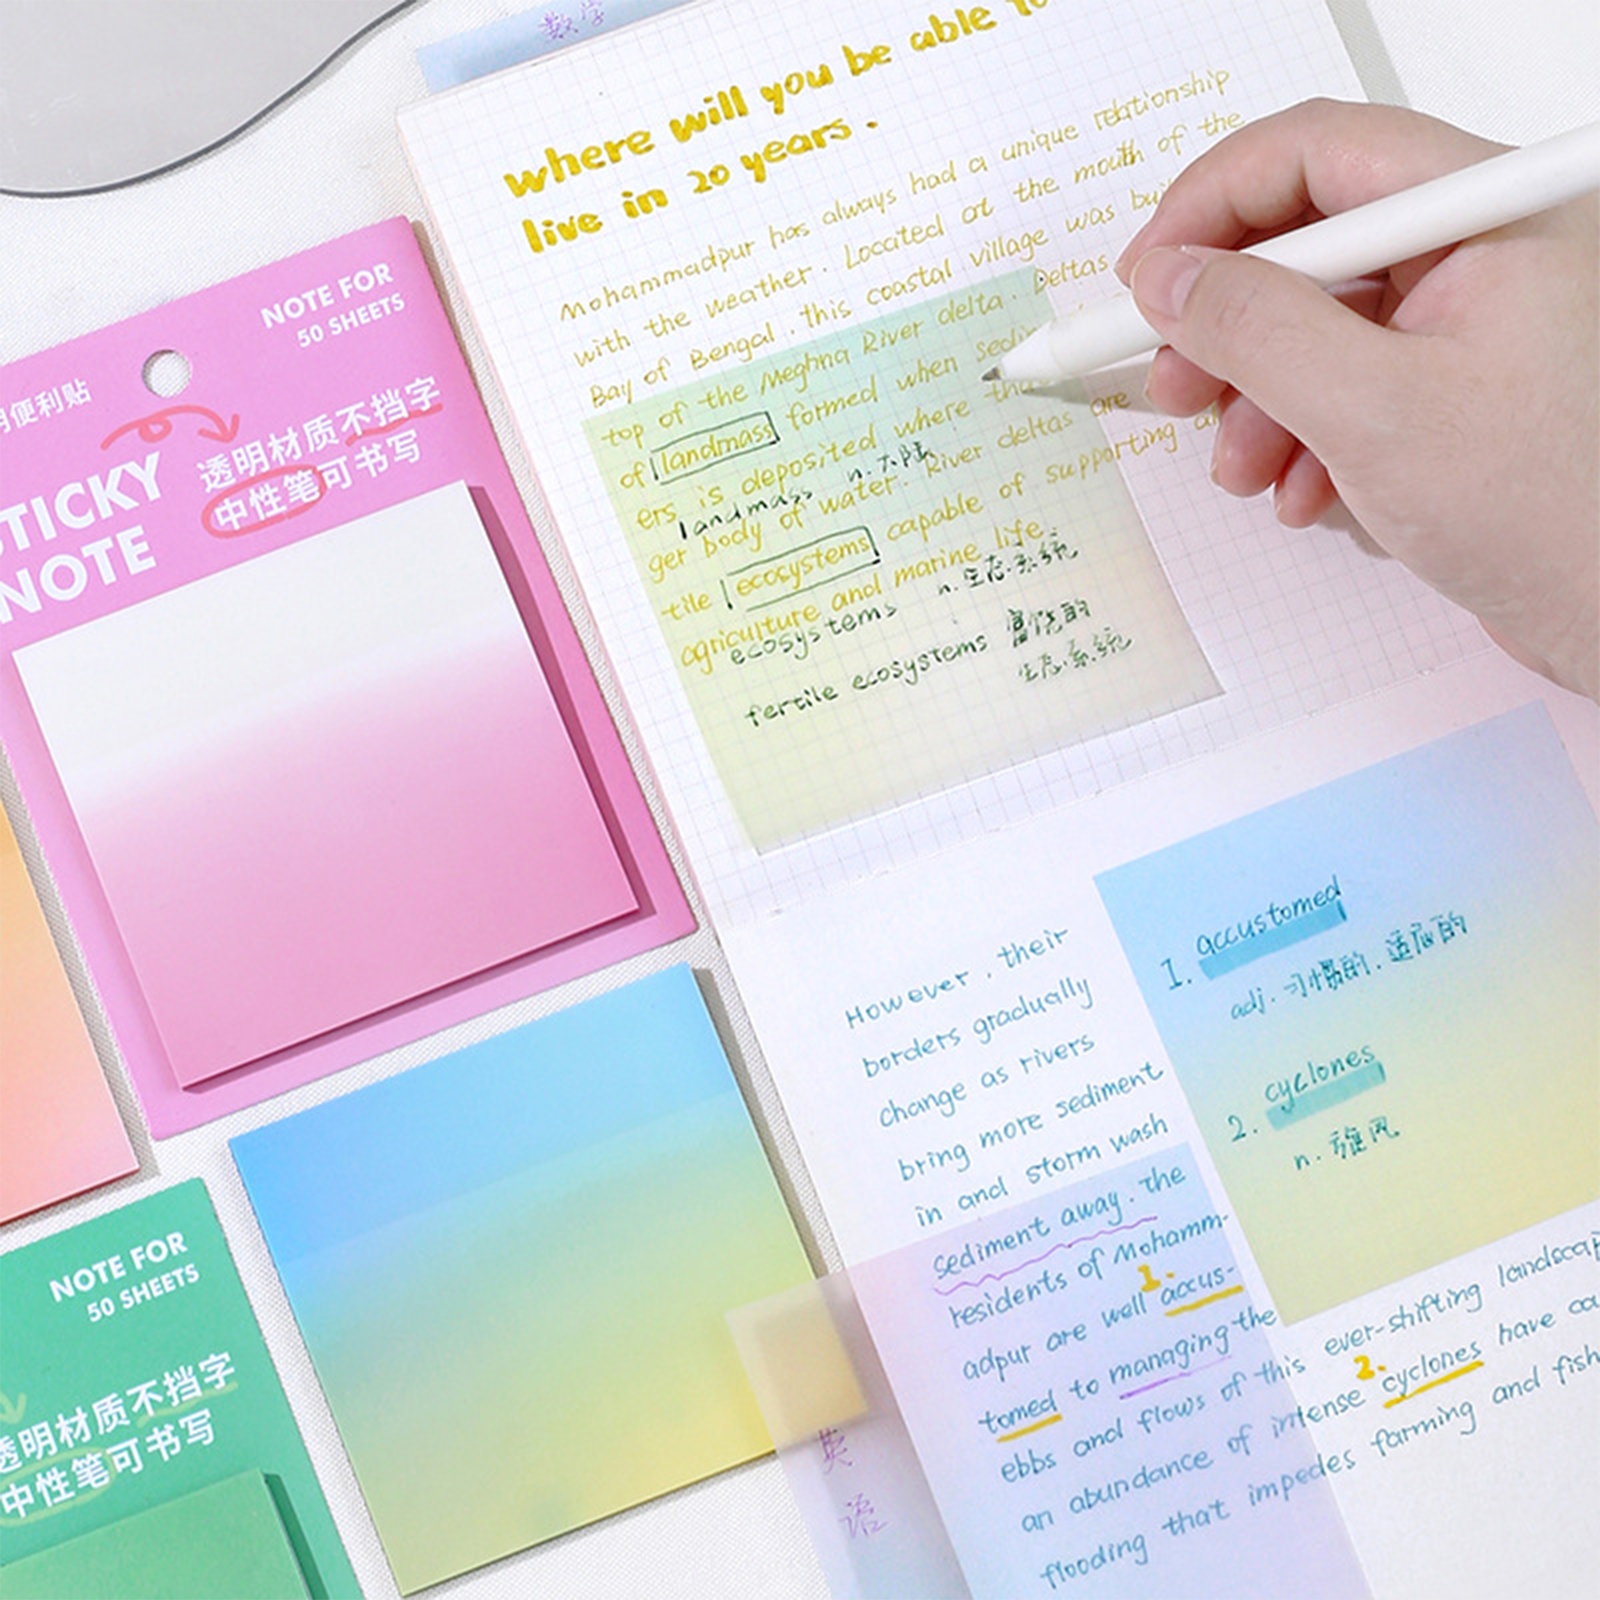 数学
where will you be able to
live in 20 years.
Mohammadpur has always had a unique relationship
with the weather. Located at the mouth of the
Bay of Bengal. this coastal village was
top of the Meghna River delta. Deltas
of landmass formed when
ers is deposited where
landmass n. 大陆
ger body of water. River deltas are
tile ecosystems capable of supporting
agriculture and marine life.
ecosystems n. 生态系统
fertile ecosystems 富饶的
生态系统
NOTE FOR
50 SHEETS
明便利贴
透明材质不挡字
中性笔可书写
STICKY
NOTE
1. accustomed
adj. 习惯的. 适应的
2. cyclones
n. 旋风
However. their
borders gradually
change as rivers
bring more sediment
in and storm wash
sediment away. the
residents of Mohamm-
1.
adpur are well accus-
tomed to managing the
ebbs and flows of this ever-shifting
2.
an abundance of intense cyclones have
flooding that impedes farming and fish
英
语
NOTE FOR
50 SHEETS
透明材质不挡字
中性笔可书写